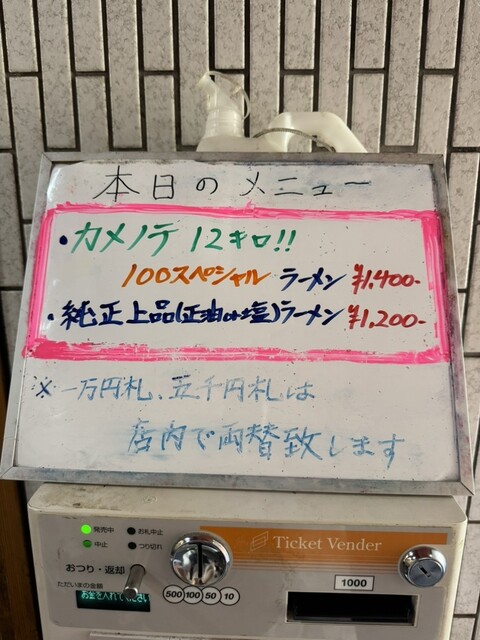 本日のメニュー
・カメノテ 12キロ!!
100スペシャル ラーメン ¥1,400-
・純正上品(正油or塩)ラーメン ¥1,200-
※一万円札、五千円札は
店内で両替致します
発売中 お札中止
中止 つり切れ
Ticket Vender
おつり・返却
ただいまの金額
お金を入れてください
500 100 50 10
1000